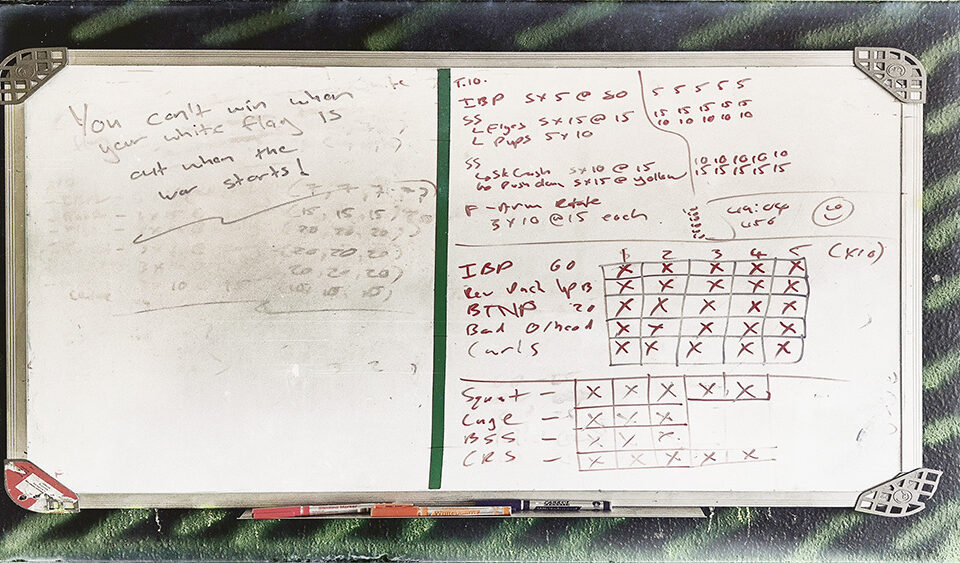 You can't win when
your white flag is
out when the
war starts!
(7, 7, 7, 7?)
15, 15, 15,
20, 20, 20,
20, 20, 20)
20, 20, 20)
10 15 (15, 15, 15)
T.10.
IBP 5x5 @ 80
5 5 5 5 5
SS
L Flyes 5x15 @ 15
15 15 15 15 15
L Pups 5x10
10 10 10 10 10
SS
5x10 @ 15
10 10 10 10 10
Push down 5x15 @ yellow
15 15 15 15 15
F-Arm Rotate
3x10 @ 15 each
49:04
456
1 2 3 4 5 (x10)
IBP 60 X X X X X
Rev Pack UpB X X X X X
BTNP 20 X X X X X
Band O/head X X X X X
Curls X X X X X
Squat - X X X X X
Lunge - X X X
BSS - X X X
CRS - X X X X X